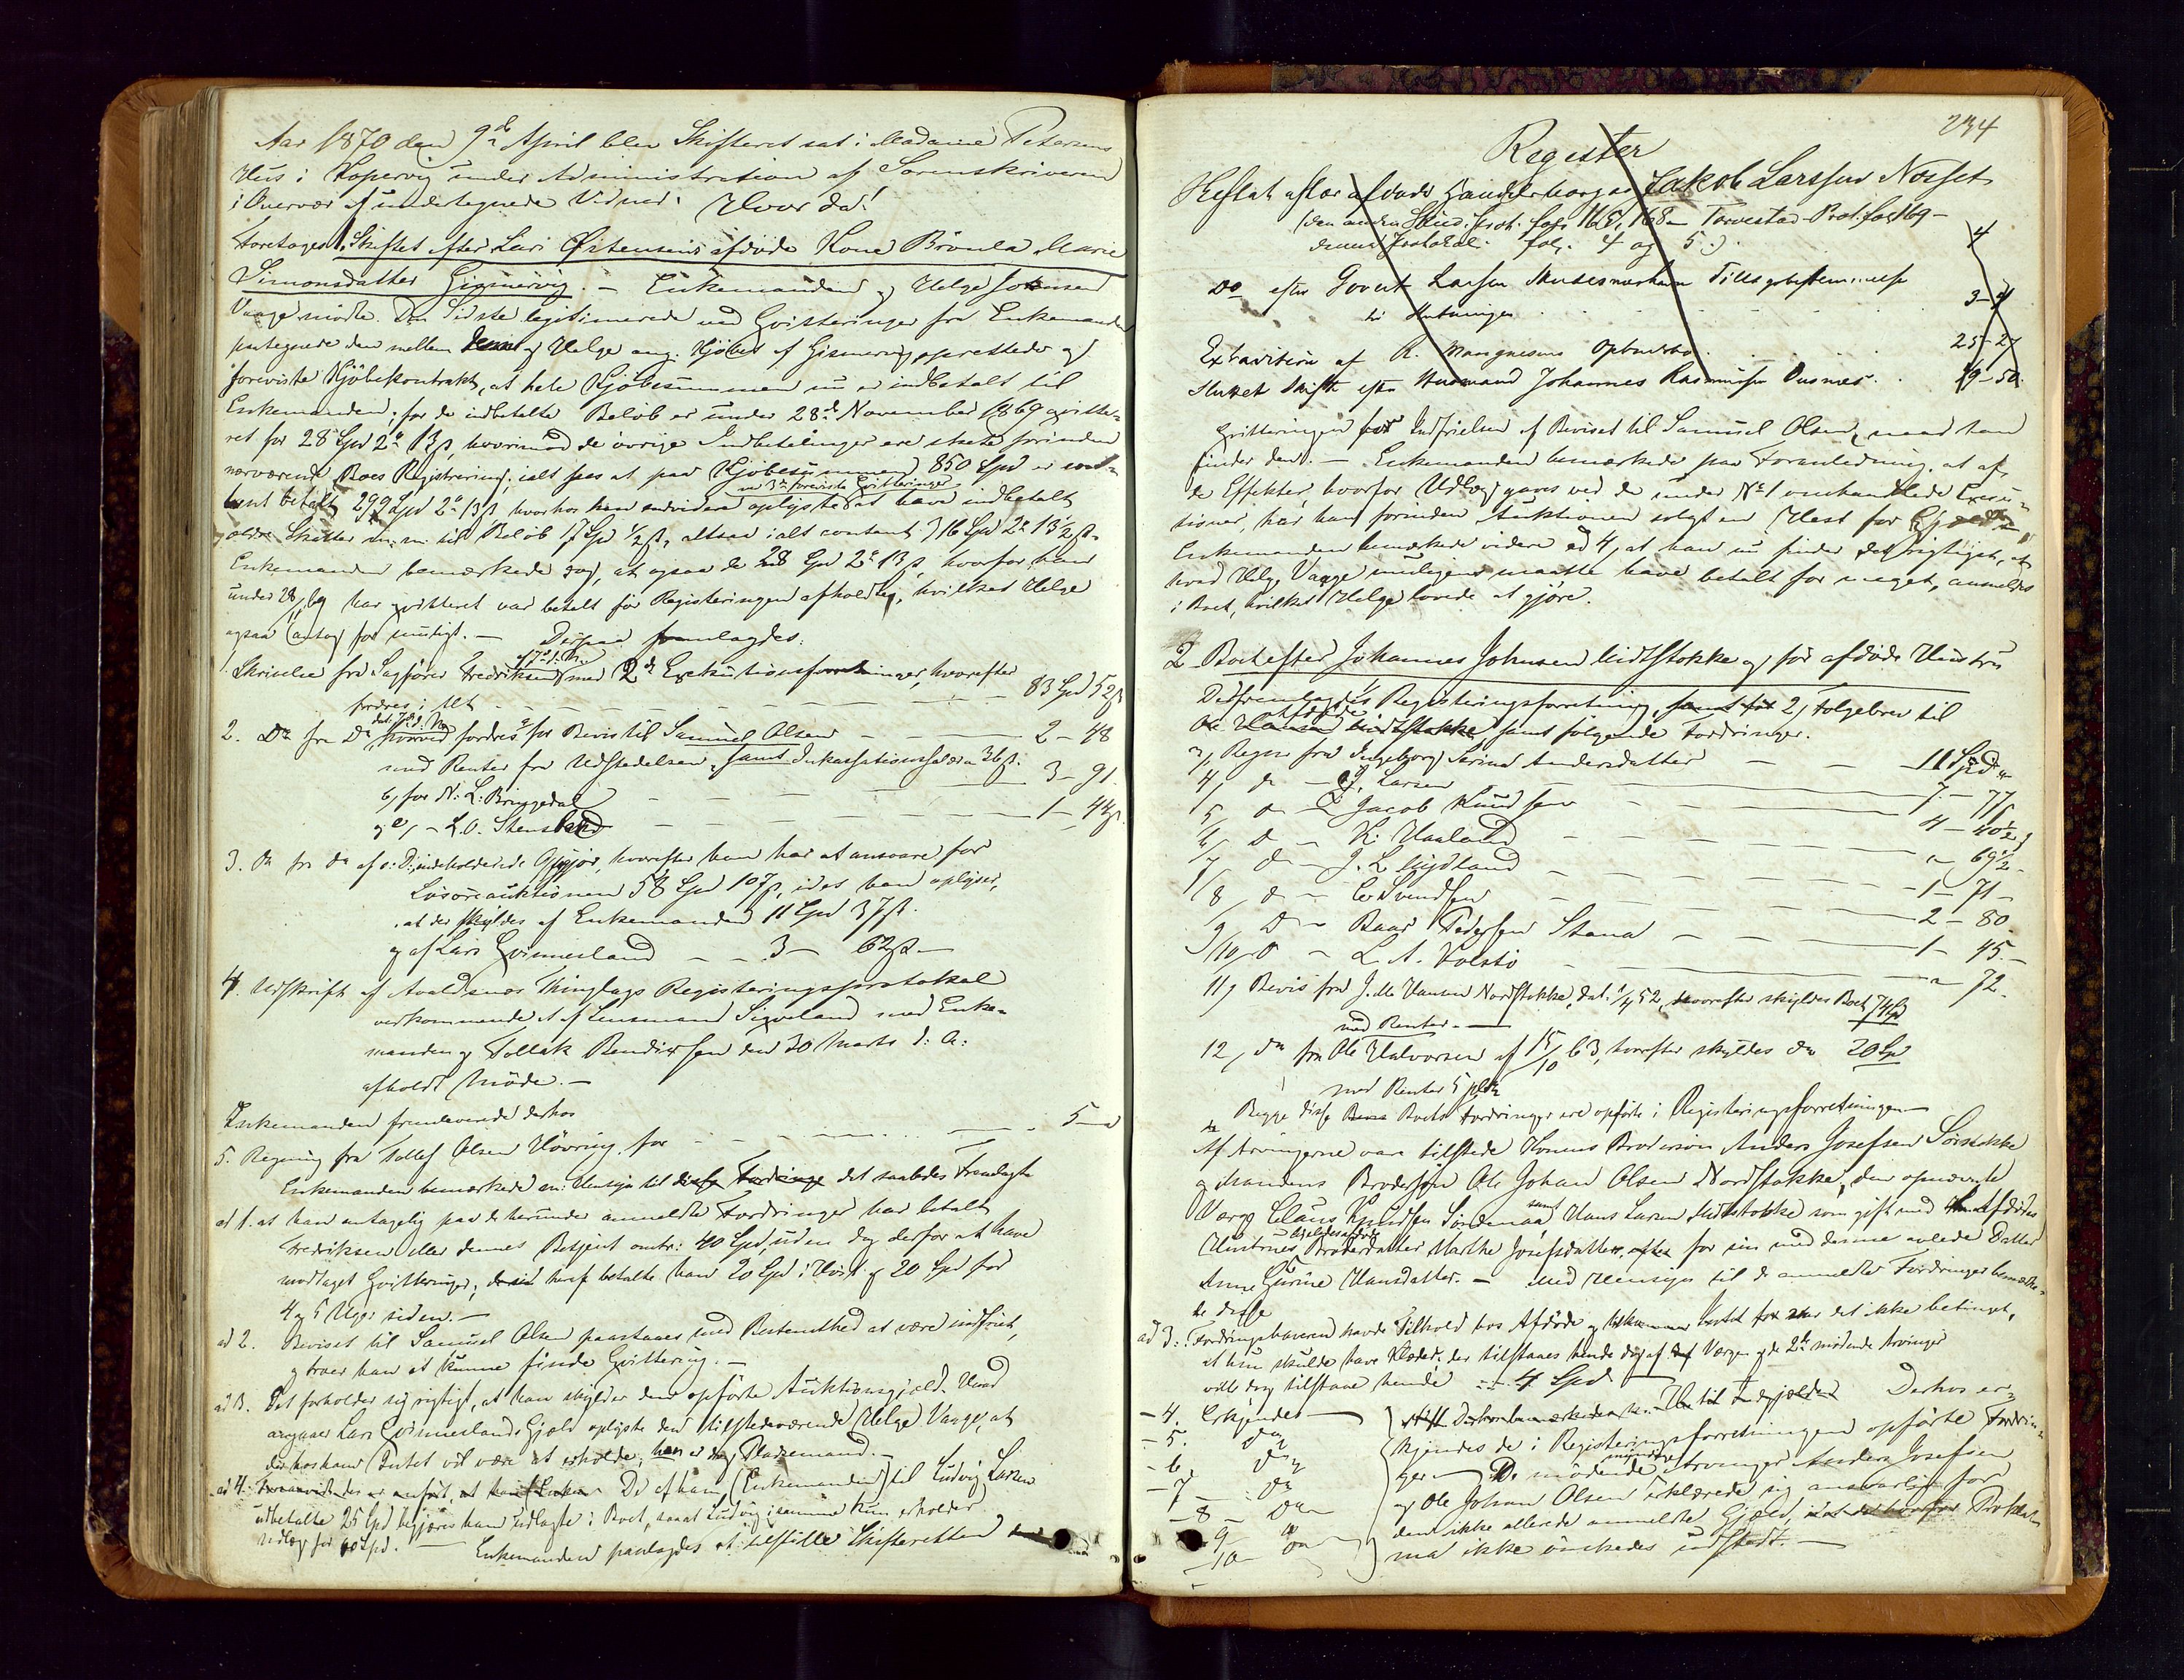 Aar 1870 den 9de April blev Skifteret sat i Madame Petersens
Hus i Kopervig under Administration af Sorenskriveren
i Overvær af undertegnede Vidner. Hvor da!
Foretoges 1, Skiftet efter Lars Østensens afdøde Kone Brönla Marie
Simonsdatter Gismervig. — Enkemanden og Helge
Vaage mödte. Den Sidste legitimerede ved Qvitteringer fra Enkemanden
paategnede den mellem denne og Helge ang. Kjöbet af Gismervig oprettede og
foreviste Kjöbekontrakt, at hele Kjöbesummen nu er indbetalt til
Enkemanden; for de indbetalte Belöb er under 28de November 1869 qvitte-
ret for 28 Spd 2 # 13 ß, hvorimod de övrige Indbetalinger ere skete forinden
nærværende Boes Registrering; ialt sees at paa Kjöbesummen 850 Spd er
ved 3de foreviste Qvitteringer
betalt 299 Spd 2 # 13 ß hvorhos han endvidere oplyste at have indbetalt
Skatter m. m. til Belöb 17 Spd ½ ß, altsaa ialt contant 316 Spd 2 # 13½ ß.
Enkemanden bemærkede dog, at ogsaa de 28 Spd 2 # 13 ß, hvorfor han
under 28/11 69 har qvitteret var betalt för Registeringen afholdtes, hvilket Helge
ogsaa antog for muligt. — Derpaa fremlagdes:
af 7de d. M.
1. Skrivelse fra Sagförer Fredriksen med 2de Exekutionsforretninger, hvorefter
fordres i Alt — — — 83 Spd 52 ß
dat. 7de d. M.
2. Do fra Do hvorved fordres a, for Bevis til Samuel Olsen — — 2 - 48
med Renter fra Udstedelsen, samt Inkassationssalær 36 ß.
b, for N. L. Bringedal — — 3 - 91
og c, - L. O. Stensland — — 1 - 44 ß
3. Do fra do af s. D., indeholdende Opgjör, hvorefter han har at ansvare for
Lösöreauktionen 58 Spd 107 ß, idet han oplyser,
at der skyldes af Enkemanden 11 Spd 37 ß.
og af Lars Qvinnesland — — 3 — 62 ß —
4. Udskrift af Avaldsnæs Thinglags Registeringsprotokol
vedkommende et af Lensmand Sigveland med Enke-
manden og Tollak Bendixsen den 30 Marts d. A.
afholdt Möde. —
Enkemanden fremleverede derhos
5. Regning fra Tollef Olsen Hövring for — — — 5 —
Enkemanden bemærkede m. Hensyn til disse Fordringe det saaledes Fremlagte
ad 1. at han antagelig paa de herunder anmeldte Fordringer har betalt
Fredriksen eller dennes Betjent omtr. 40 Spd, uden dog derfor at have
modtaget Qvitteringer; heraf betalte han 20 Spd i Höst og 20 Spd for
4 og 5 Uger siden. —
ad 2. Beviset til Samuel Olsen paastaaes med Bestemthed at være indfriet,
og troer han at kunne finde Qvittering. —
ad 3. Det forholder sig rigtigt, at han skylder den opförte Auktionsgjæld. Hvad
angaaer Lars Qvinneslands Gjæld oplyste den tilstedeværende Helge Vaage, at
der hos ham Intet vil være at erholde; han er dog Pladsemand. —
ad 4. De af ham (Enkemanden) til Ludvig Larsen
udbetalte 25 Spd begjæres ham udlagte i Boet, saaat Ludvig i samme kun erholder
Udlæg for 60 Spd. — Enkemanden paalagdes at tilstille Skifteretten
234
Register
Restat efter afdöde Handelsborger Jakob Larssen Nosset
(den anden Skud. prot. fol. 167, 168 — Torvestad Prot. fol 169 —
denne Protokol. fol. 4 og 5.) . . 4
Do efter Govert Larsen Tillægsbestemmelse
til Slutningen . . . . 3-4
Extradition af R. Mangnesens Opbudsbo . . . 25-27
Sluttet Skifte efter Huusmand Johannes Rasmussen Ousnes . . 49-50.
Qvitteringen for Indfrielsen af Beviset til Samuel Olsen, naar han
finder den. — Enkemanden bemærkede paa Foranledning, at af
de Effekter, hvorfor Udlæg gaves ved de under No 1 omhandlede Execu-
tioner, har han forinden Auktionen solgt en Hest for Gjæld —
Enkemanden bemærkede videre ad 4, at han nu finder det rigtigst, at
hvad Helge Vaage muligens maatte have betalt for meget, anmeldes
i Boet, hvilket Helge lovede at gjöre.
2 Boet efter Johannes Johnsen Midtstokke og för afdöde Hustru
Det fremlagdes 1, Registeringsforretning, samt för 2, Fölgebrev til
Afdöde
Ole Hansen Midtstokke, samt fölgende Fordringer.
3, Regn. fra Ingeborg Serine Andersdatter — — 11 Spd "
4, do — J. Larsen — — 7 - 77
5, do — Jacob Knudsen — — 4 - 40½
6, do — K. Haaland — — " 69½
7, do — J. L. Nygaard — — 1 - 71 -
8, do — C. Svendsen — — 2 - 80
9, do — Baar Pedersen Stana — — 1 - 45 -
10, do — L. A. Valstö — — " 72.
11, Bevis fra J. M. Hansen Nordstokke, dat. 1/4 52, hvorefter skyldes Boet 74 Spd
med Renter. —
12, do fra Ole Halvorsen af 15/10 63, hvorefter skyldes do 20 Spd
med Renter 5 pCt.
Begge disse Boets Fordringer ere opförte i Registeringsforretningen —
Af Arvingerne vare tilstede Konens Brodersön Anders Josefsen Sörstokke
og Mandens Brodersön Ole Johan Olsen Nordstokke, den opnævnte
Værge Claus Knudsen Söndenaa samt Hans Larsen Midtstokke som gift med Afdödes
Hustrues Broderdatter Marthe Josefsdatter, for sin med denne avlede Datter
Anne Gurine Hansdatter. — Med Hensyn til de anmeldte Fordringer bemærke-
de disse
ad 3: Fordringshaveren havde Tilhold hos Afdöde og det ikke betinget,
at hun skulde have Klæder; der tilstaaes hende dog af Værgen og de 2de mödende Arvinger
vilde dog tilstaae hende — 4 Spd
— 4. Erkjendes —
— 5. do
— 6. do
— 7 — do
— 8 — do
— 9 — do
— 10 — do
Derhos er-
kjendes de i Registeringsforretningen opförte Fordrin-
ger — De mödende myndige Arvinger Anders Josefsen
og Ole Johan Olsen erklærede sig ansvarlige for
den ikke allerede anmeldte Gjæld, Proklam
ma ikke önskedes udstedt. —